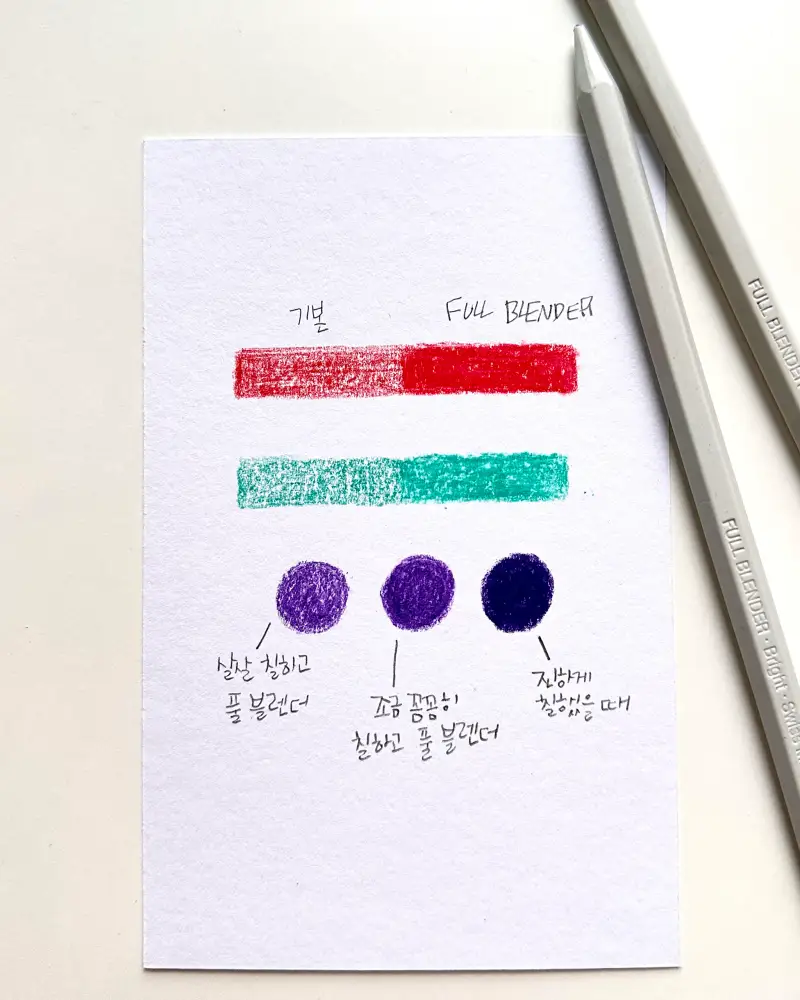 기본
FULL BLENDER
살살 칠하고
풀 블렌더
조금 꼼꼼히
칠하고 풀 블렌더
진하게
칠했을 때
FULL BLENDER
FULL BLENDER · Bright · Swiss